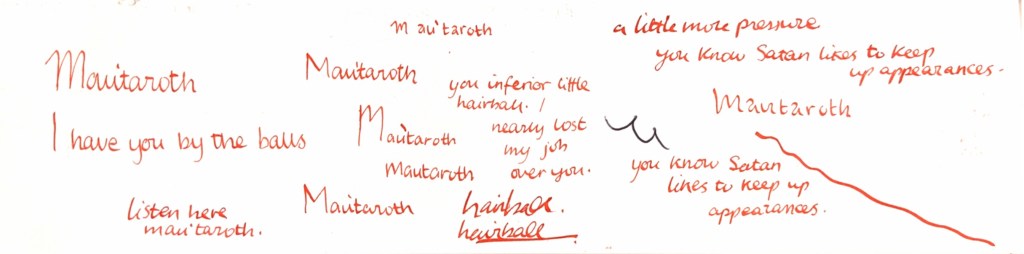 Mau'taroth
I have you by the balls
listen here
mau'taroth.
Mau'taroth
Mau'taroth
Mau'taroth
Mautaroth
Mau'taroth
you inferior little
hairball. I
nearly lost
my job
over you.
hairball.
hairball
a little more pressure
you know Satan likes to keep
up appearances.
Mautaroth
you know Satan
likes to keep up
appearances.